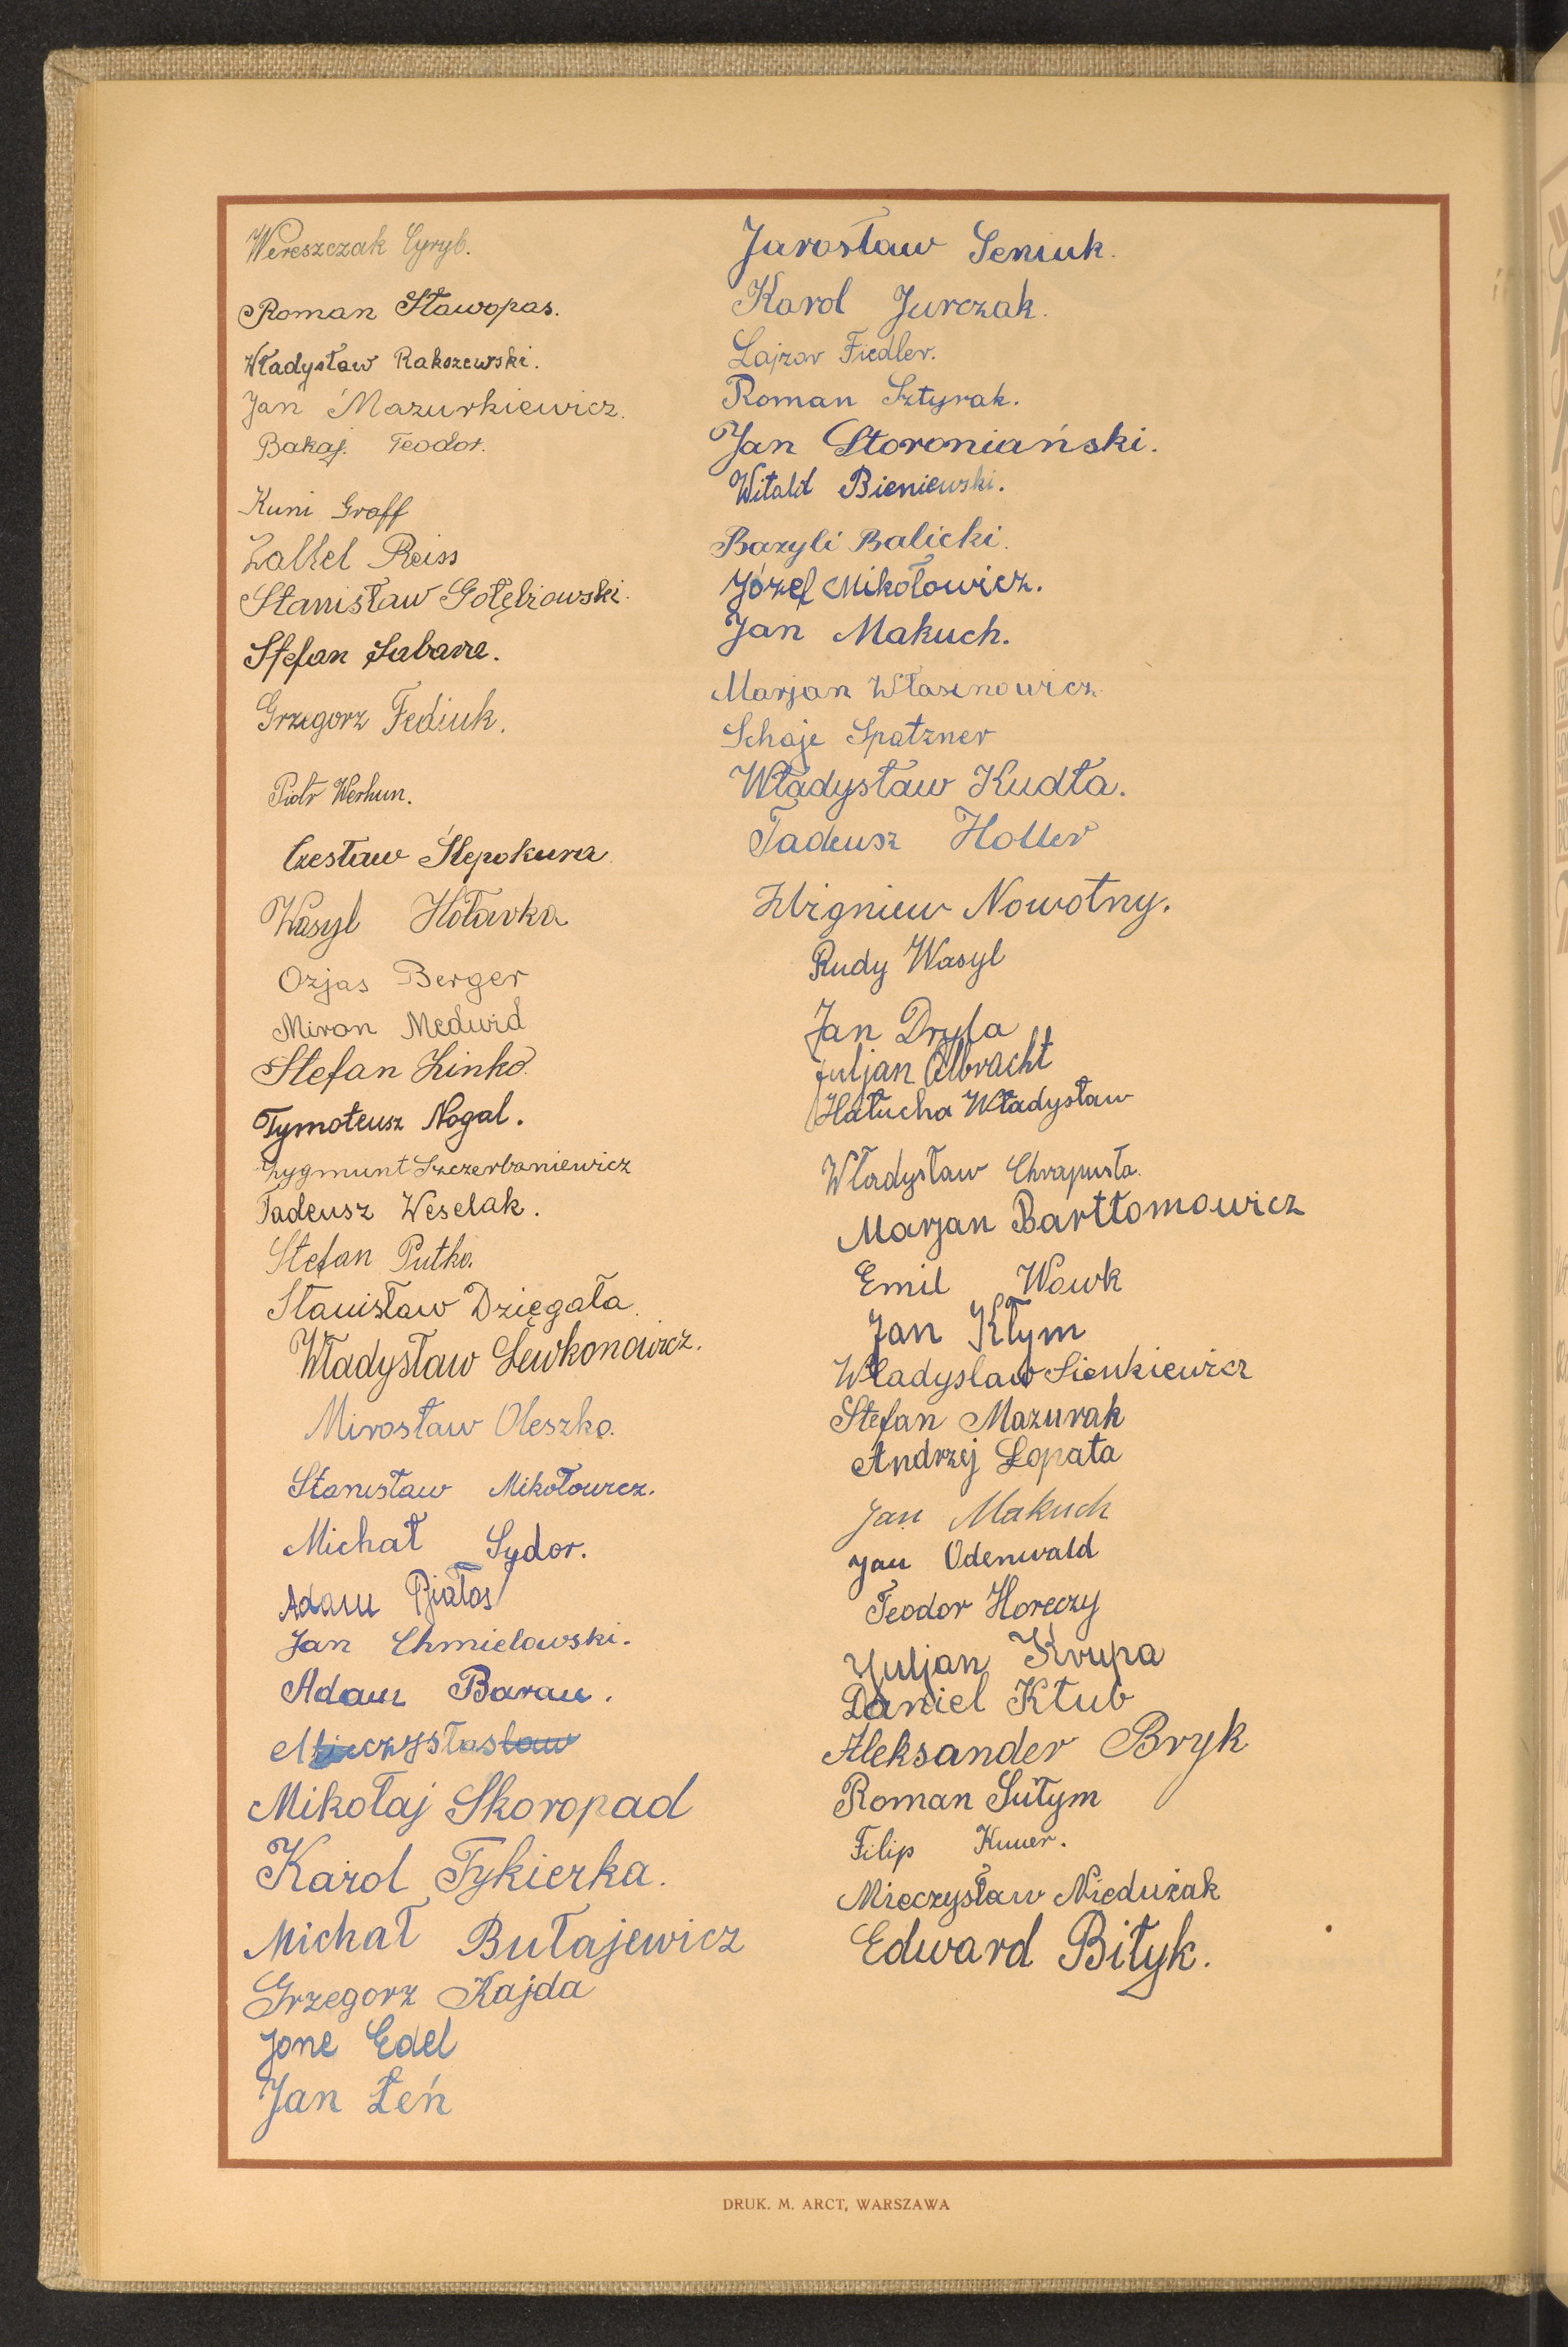 Wereszczak Cyryl.
Roman Stawopas.
Władysław Rakoszewski.
Jan Mazurkiewicz.
Bakaj. Teodor.
Kuni Graff
Zallel Reiss
Stanisław Gołębiowski.
Stefan Sabara.
Grzegorz Fediuk.
Piotr Werhun.
Czesław Ślepokura
Wasyl Hoławka
Ozjas Berger
Miron Medwid
Stefan Zinko.
Tymoteusz Nogal.
Zygmunt Szczerbaniewicz
Tadeusz Weselak.
Stefan Putko.
Stanisław Dzięgała.
Władysław Lewkonowicz.
Mirosław Oleszko.
Stanisław Mikołowicz.
Michał Sydor.
Adam Białas
Jan Chmielowski.
Adam Baran.
Mikołaj Skoropad
Karol Fykierka.
Michał Bułajewicz
Grzegorz Kajda
Jone Edel
Jan Łeń
Jarosław Seniuk.
Karol Jurczak.
Lajzor Fiedler.
Roman Sztyrak.
Jan Storoniański.
Witald Bieniewski.
Bazyli Balicki.
Józef Mikołowicz.
Jan Makuch.
Marjan Własinowicz
Schaje Spatzner
Władysław Kudła.
Tadeusz Holler
Zbigniew Nowotny.
Rudy Wasyl
Jan Dryla
Juljan Olbracht
Hałucha Władysław
Władysław Chrapusta.
Marjan Bartłomowicz
Emil Wowk
Jan Kłym
Władysław Sienkiewicz
Stefan Mazurak
Andrzej Łopata
Jan Makuch
Jan Odenwald
Teodor Horeczy
Juljan Krupa
Daniel Kłub
Aleksander Bryk
Roman Sułym
Filip
Mieczysław Niedużak
Edward Biłyk.
DRUK. M. ARCT, WARSZAWA